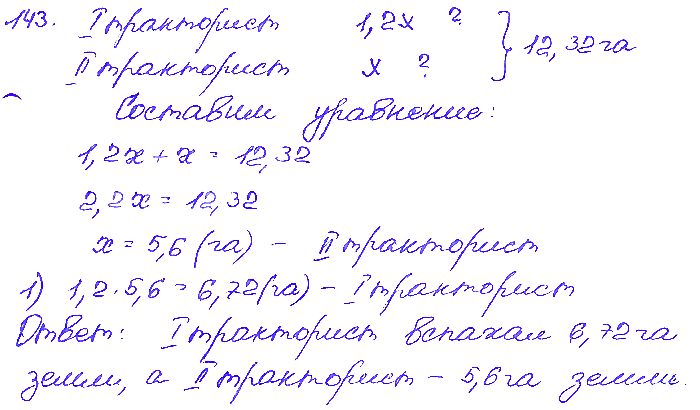 143. I тракторист 1,2x ? } 12,32 га
II тракторист x ?
Составим уравнение:
1,2x + x = 12,32
2,2x = 12,32
x = 5,6 (га) - II тракторист
1) 1,2 · 5,6 = 6,72 (га) - I тракторист
Ответ: I тракторист вспахал 6,72 га
земли, а II тракторист - 5,6 га земли.